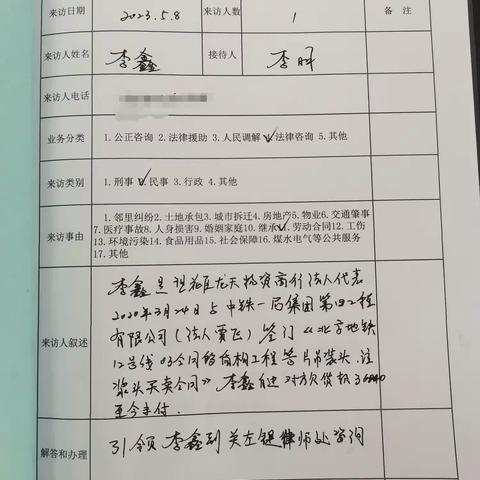 来访日期 2023.5.8 来访人数 1 备 注
来访人姓名 李鑫 接待人 李
来访人电话
业务分类 1.公正咨询 2.法律援助 3.人民调解 ✓法律咨询 5.其他
来访类别 1.刑事 ✓民事 3.行政 4.其他
1.邻里纠纷2.土地承包3.城市拆迁4.房地产5.物业6.交通肇事
来访事由 7.医疗事故8.人身损害9.婚姻家庭10.继承✓1.劳动合同12.工伤
13.环境污染14.食品用品15.社会保障16.煤水电气等公共服务
17.其他
李鑫是 龙天投资商行法人代表
2020年3月24日与中铁一局集团第四工程
有限公司(法人贾飞)签订《北京地铁
来访人叙述 12号线03合同段 工程管片吊装头、注
浆头买卖合同》李鑫自述对方欠货款
至今未付.
解答和办理 引领李鑫到关左 律师处咨询